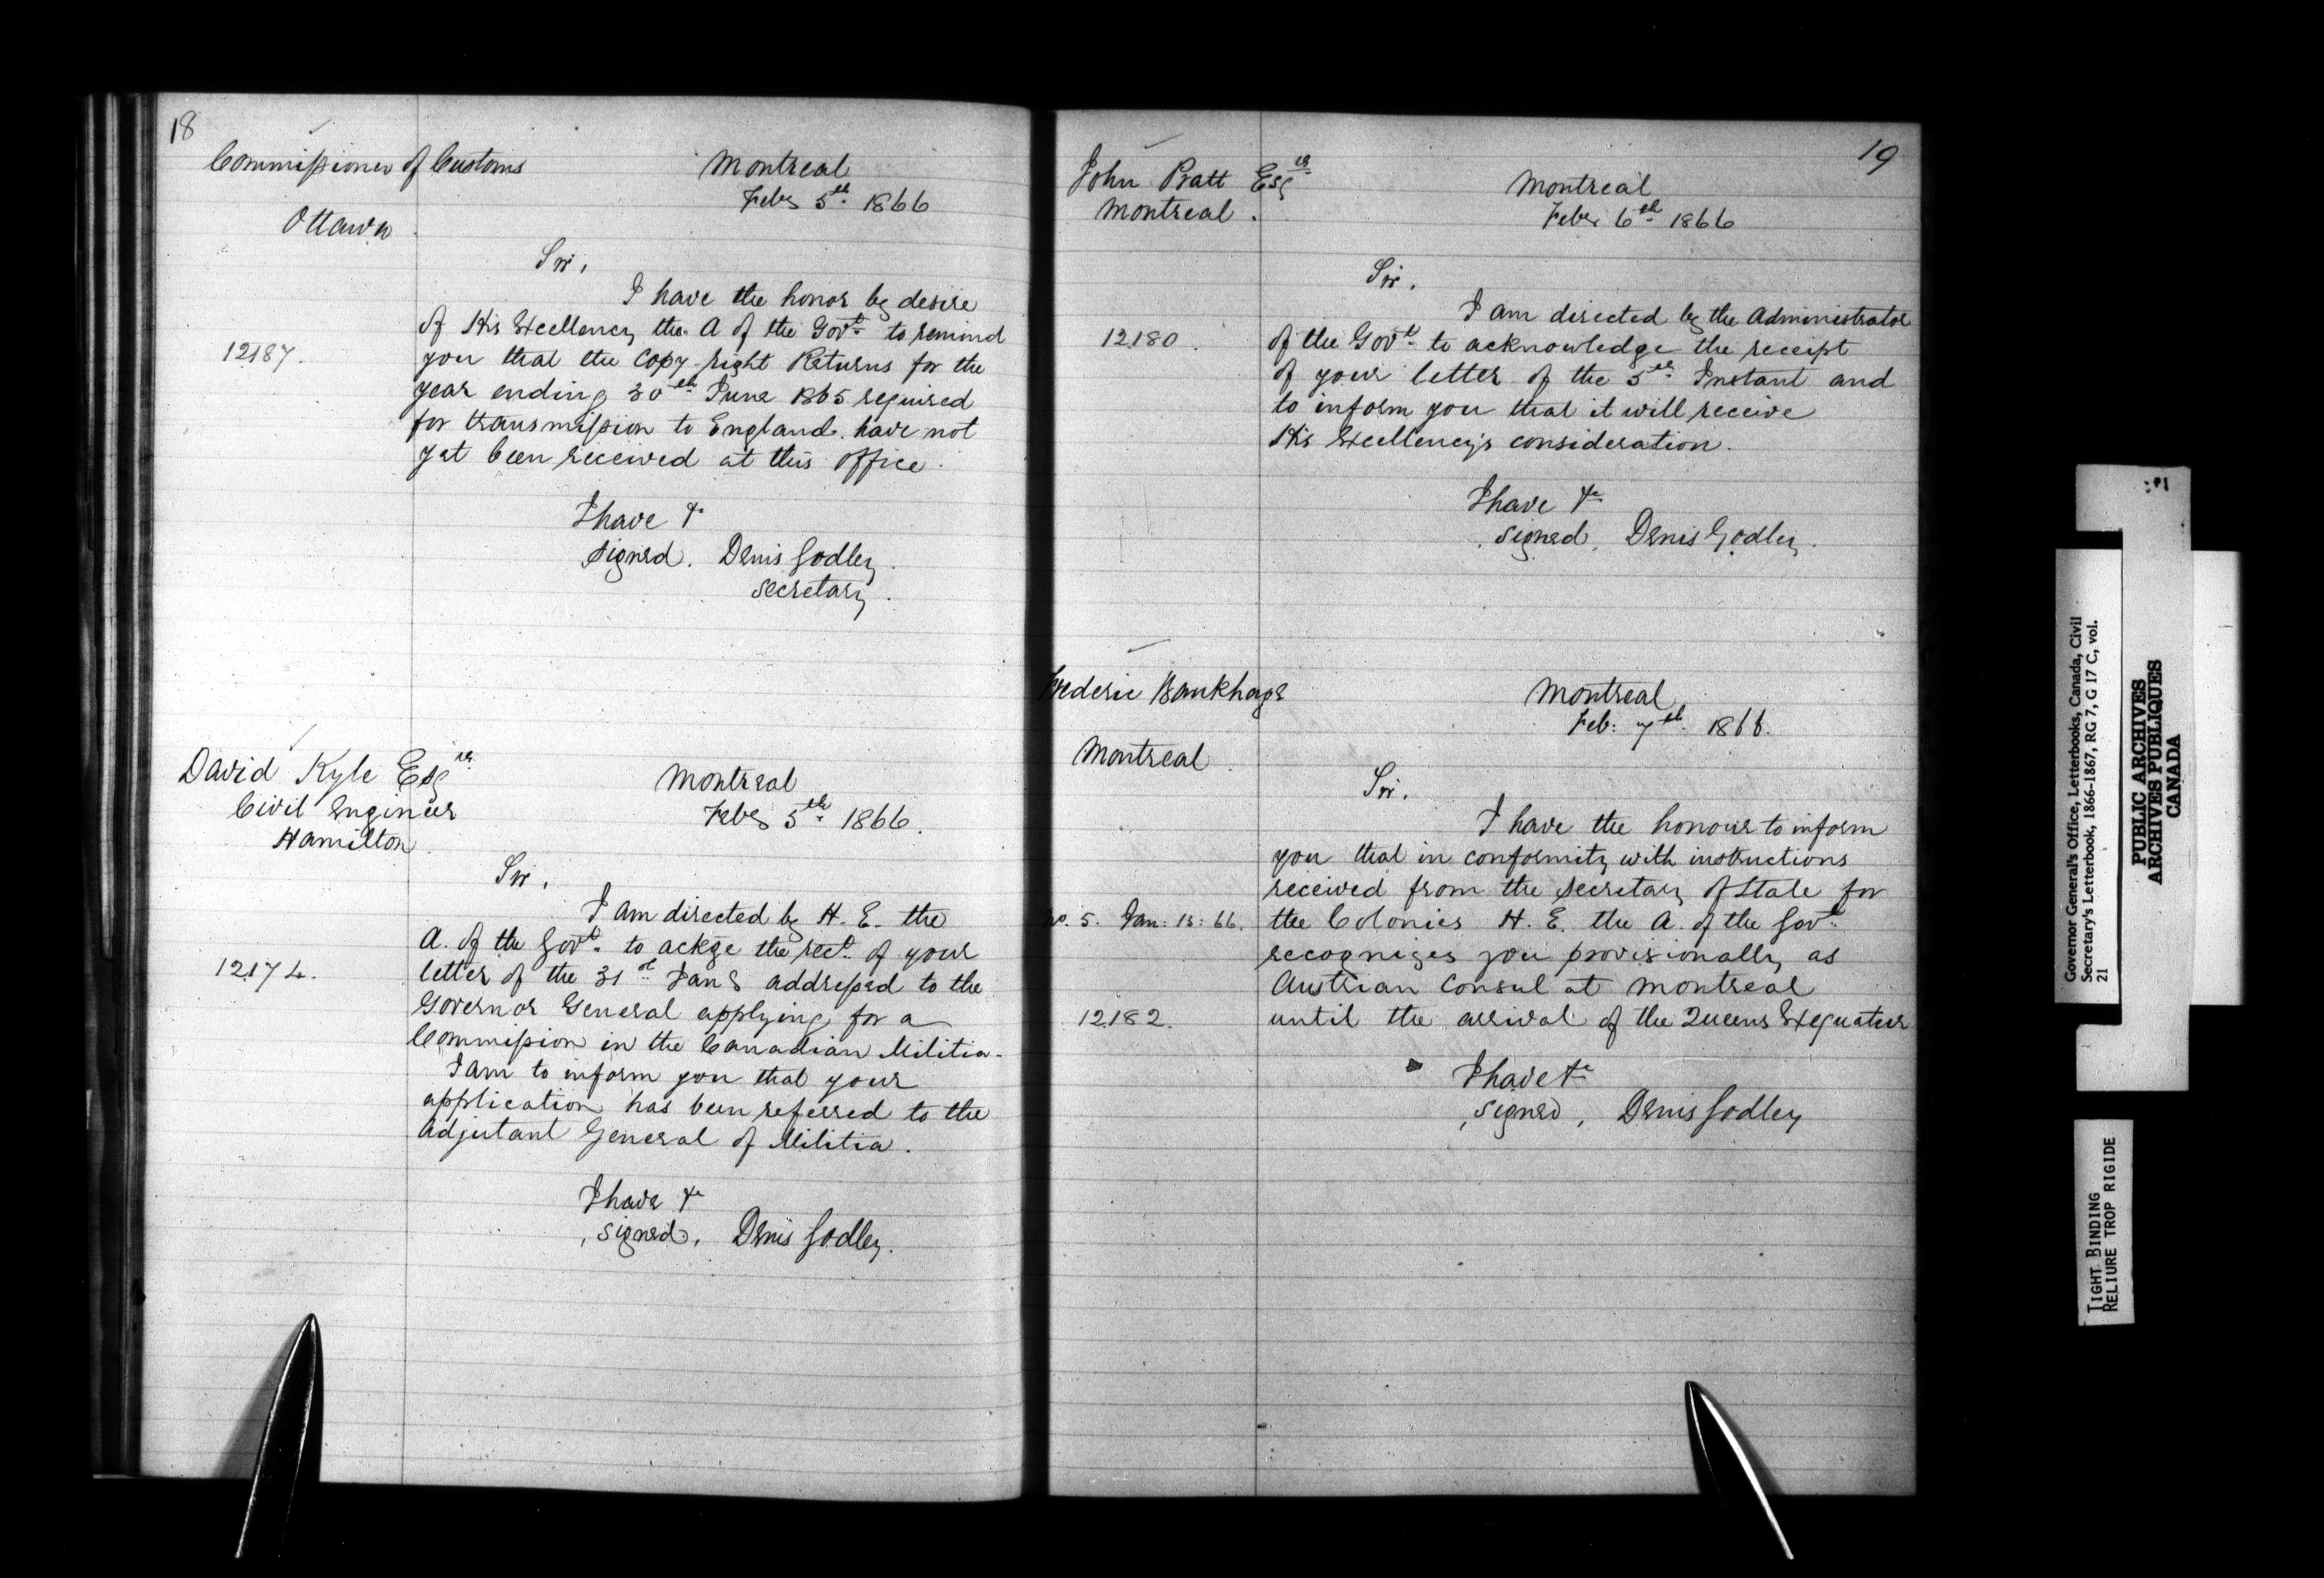 18
Commissioner of Customs
Ottawa
Montreal
Feby 5th 1866
Sir,
I have the honor by desire
of His Excellency the A of the Govt to remind
12187.
you that the Copy-right Returns for the
year ending 30th June 1865 required
for transmission to England have not
yet been received at this office.
I have &c
signed. Denis Godley.
Secretary.
David Kyle Esqre
Civil Engineer
Hamilton
Montreal
Feby 5th 1866.
Sir,
I am directed by H. E. the
A. of the Govt to ackge the rect of your
12174.
letter of the 31st Jany addressed to the
Governor General applying for a
Commission in the Canadian Militia.
I am to inform you that your
application has been referred to the
Adjutant General of Militia.
I have &c
signed, Denis Godley.
19
John Pratt Esqre
Montreal.
Montreal
Feby 6th 1866
Sir.
I am directed by the Administrator
12180.
of the Govt to acknowledge the receipt
of your letter of the 5th Instant and
to inform you that it will receive
His Excellency's consideration.
I have &c
signed, Denis Godley.
Frederic Bankhage
Montreal.
Montreal
Feb: 7th 1866.
Sir.
I have the honour to inform
you that in conformity with instructions
received from the Secretary of State for
No. 5. Jan: 13: 66.
the Colonies H. E. the A. of the Govt
recognizes you provisionally as
Austrian Consul at Montreal
12182.
until the arrival of the Queens Exequatur
I have &c
signed, Denis Godley
Governor General's Office, Letterbooks, Canada, Civil
Secretary's Letterbook, 1866-1867, RG 7, G 17 C, vol.
21
PUBLIC ARCHIVES
ARCHIVES PUBLIQUES
CANADA
TIGHT BINDING
RELIURE TROP RIGIDE